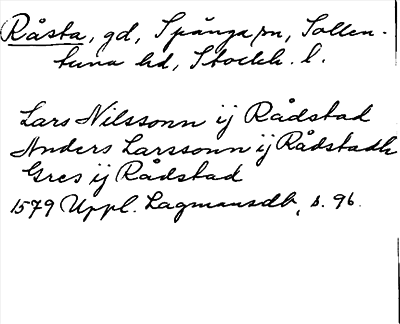 Råsta, gd, Spånga sn, Sollen-
tuna hd, Stockh. l.
Lars Nilssonn ij Rådstad
Anders Larssonn ij Rådstadh
Gres ij Rådstad
1579 Uppl. Lagmansdb, s. 96.